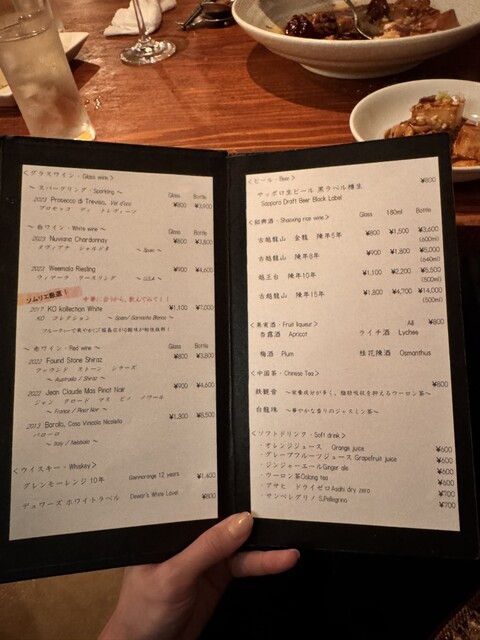 ＜グラスワイン・Glass wine＞
～ スパークリング・Sparkling ～ Glass Bottle
2023 Prosecco di Treviso, Val d'oro ¥800 ¥3,800
プロセッコ ディ トレヴィーゾ
～ 白ワイン・White wine ～ Glass Bottle
2023 Nuviana Chardonnay ¥800 ¥3,800
ヌヴィアナ シャルドネ ～ Spain ～
2023 Weemala Riesling ¥900 ¥4,600
ウィマーラ リースリング
ソムリエ厳選! 中華に合うから、飲んでみて!!
2017 KO kollection White ¥1,100 ¥7,000
KO コレクション ～ Spain/ Garnacha Blanco ～
～ 赤ワイン・Red wine ～ Glass Bottle
2022 Found Stone Shiraz ¥800 ¥3,800
ファウンド ストーン シラーズ
～ Australia / Shiraz ～
2022 Jean Claude Mas Pinot Noir ¥900 ¥4,600
ジャン クロード マス ピノ ノワール
～ France / Pinot Noir ～
2013 Barolo, Casa Vinicola Nicolello ¥1,300 ¥8,500
バローロ
～ Italy / Nebbiolo ～
＜ウイスキー・Whiskey＞ Glass
グレンモーレンジ 10年 Glenmorangie 12 years ¥1,400
デュワーズ ホワイトラベル Dewar's White Label ¥800
＜ビール・Beer＞
サッポロ生ビール 黒ラベル樽生 ¥800
Sapporo Draft Beer Black Label
＜紹興酒・Shaoxing rice wine＞ Glass 180ml Bottle
古越龍山 金龍 陳年5年 ¥800 ¥1,500 ¥3,600
(600ml)
古越龍山 陳年8年 ¥900 ¥1,800 ¥6,000
(640ml)
越王台 陳年10年 ¥1,100 ¥2,200 ¥6,500
(500ml)
古越龍山 陳年15年 ¥1,800 ¥4,700 ¥14,000
(500ml)
＜果実酒・Fruit liqueur＞ All ¥800
杏露酒 Apricot ライチ酒 Lychee
梅酒 Plum 桂花陳酒 Osmanthus
＜中国茶・Chinese Tea＞ ¥800
鉄観音 ～栄養成分が多く、脂肪吸収を抑えるウーロン茶～
白龍珠 ～華やかな香りのジャスミン茶～
＜ソフトドリンク・Soft drink＞
・オレンジジュース Orange juice ¥600
・グレープフルーツジュース Grapefruit juice ¥600
・ジンジャーエール Ginger ale ¥600
・ウーロン茶 Oolong tea ¥600
・アサヒ ドライゼロ Asahi dry zero ¥700
・サンペレグリノ S.Pellegrino ¥700